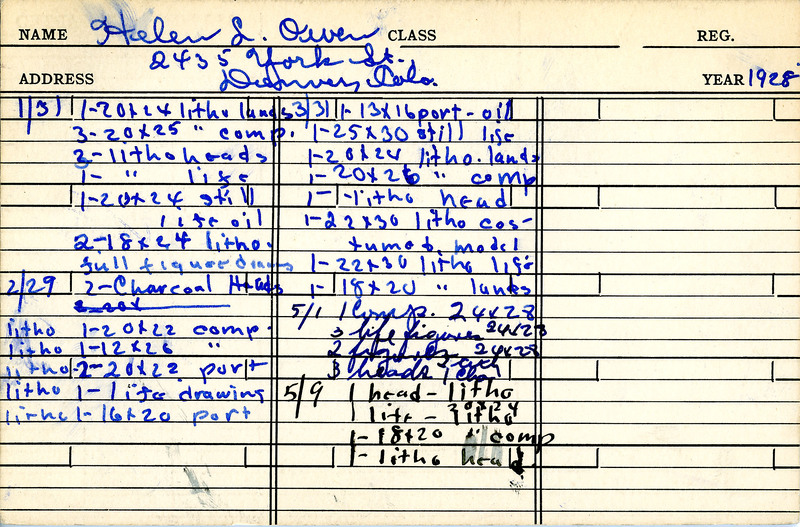 NAME Helen L. Owen CLASS REG.
2435 York St.
ADDRESS Denver, Colo. YEAR 1928
1/31 1-20x24 litho lands
3-20x25 " comp.
2-litho heads
1- " life
1-20x24 still
life oil
2-18x24 litho.
full figure draws
2/29 2-Charcoal Heads
2-20x
litho 1-20x22 comp.
litho 1-12x26 "
litho 2-20x22 port
litho 1-life drawing
litho 1-16x20 port
3/31 1-13x16 port-oil
1-25x30 still life
1-20x24 litho. lands
1-20x26 " comp
1-litho head
1-22x30 litho cos-
tumed. model
1-22x30 litho life
1-18x20 " lands
5/1 1 Comp. 24x28
3 life figures 24x28
2 figures 24x28
3 heads
5/9 1 head-litho
1 life - litho 20x24
1-18x20 " comp
1-litho head.